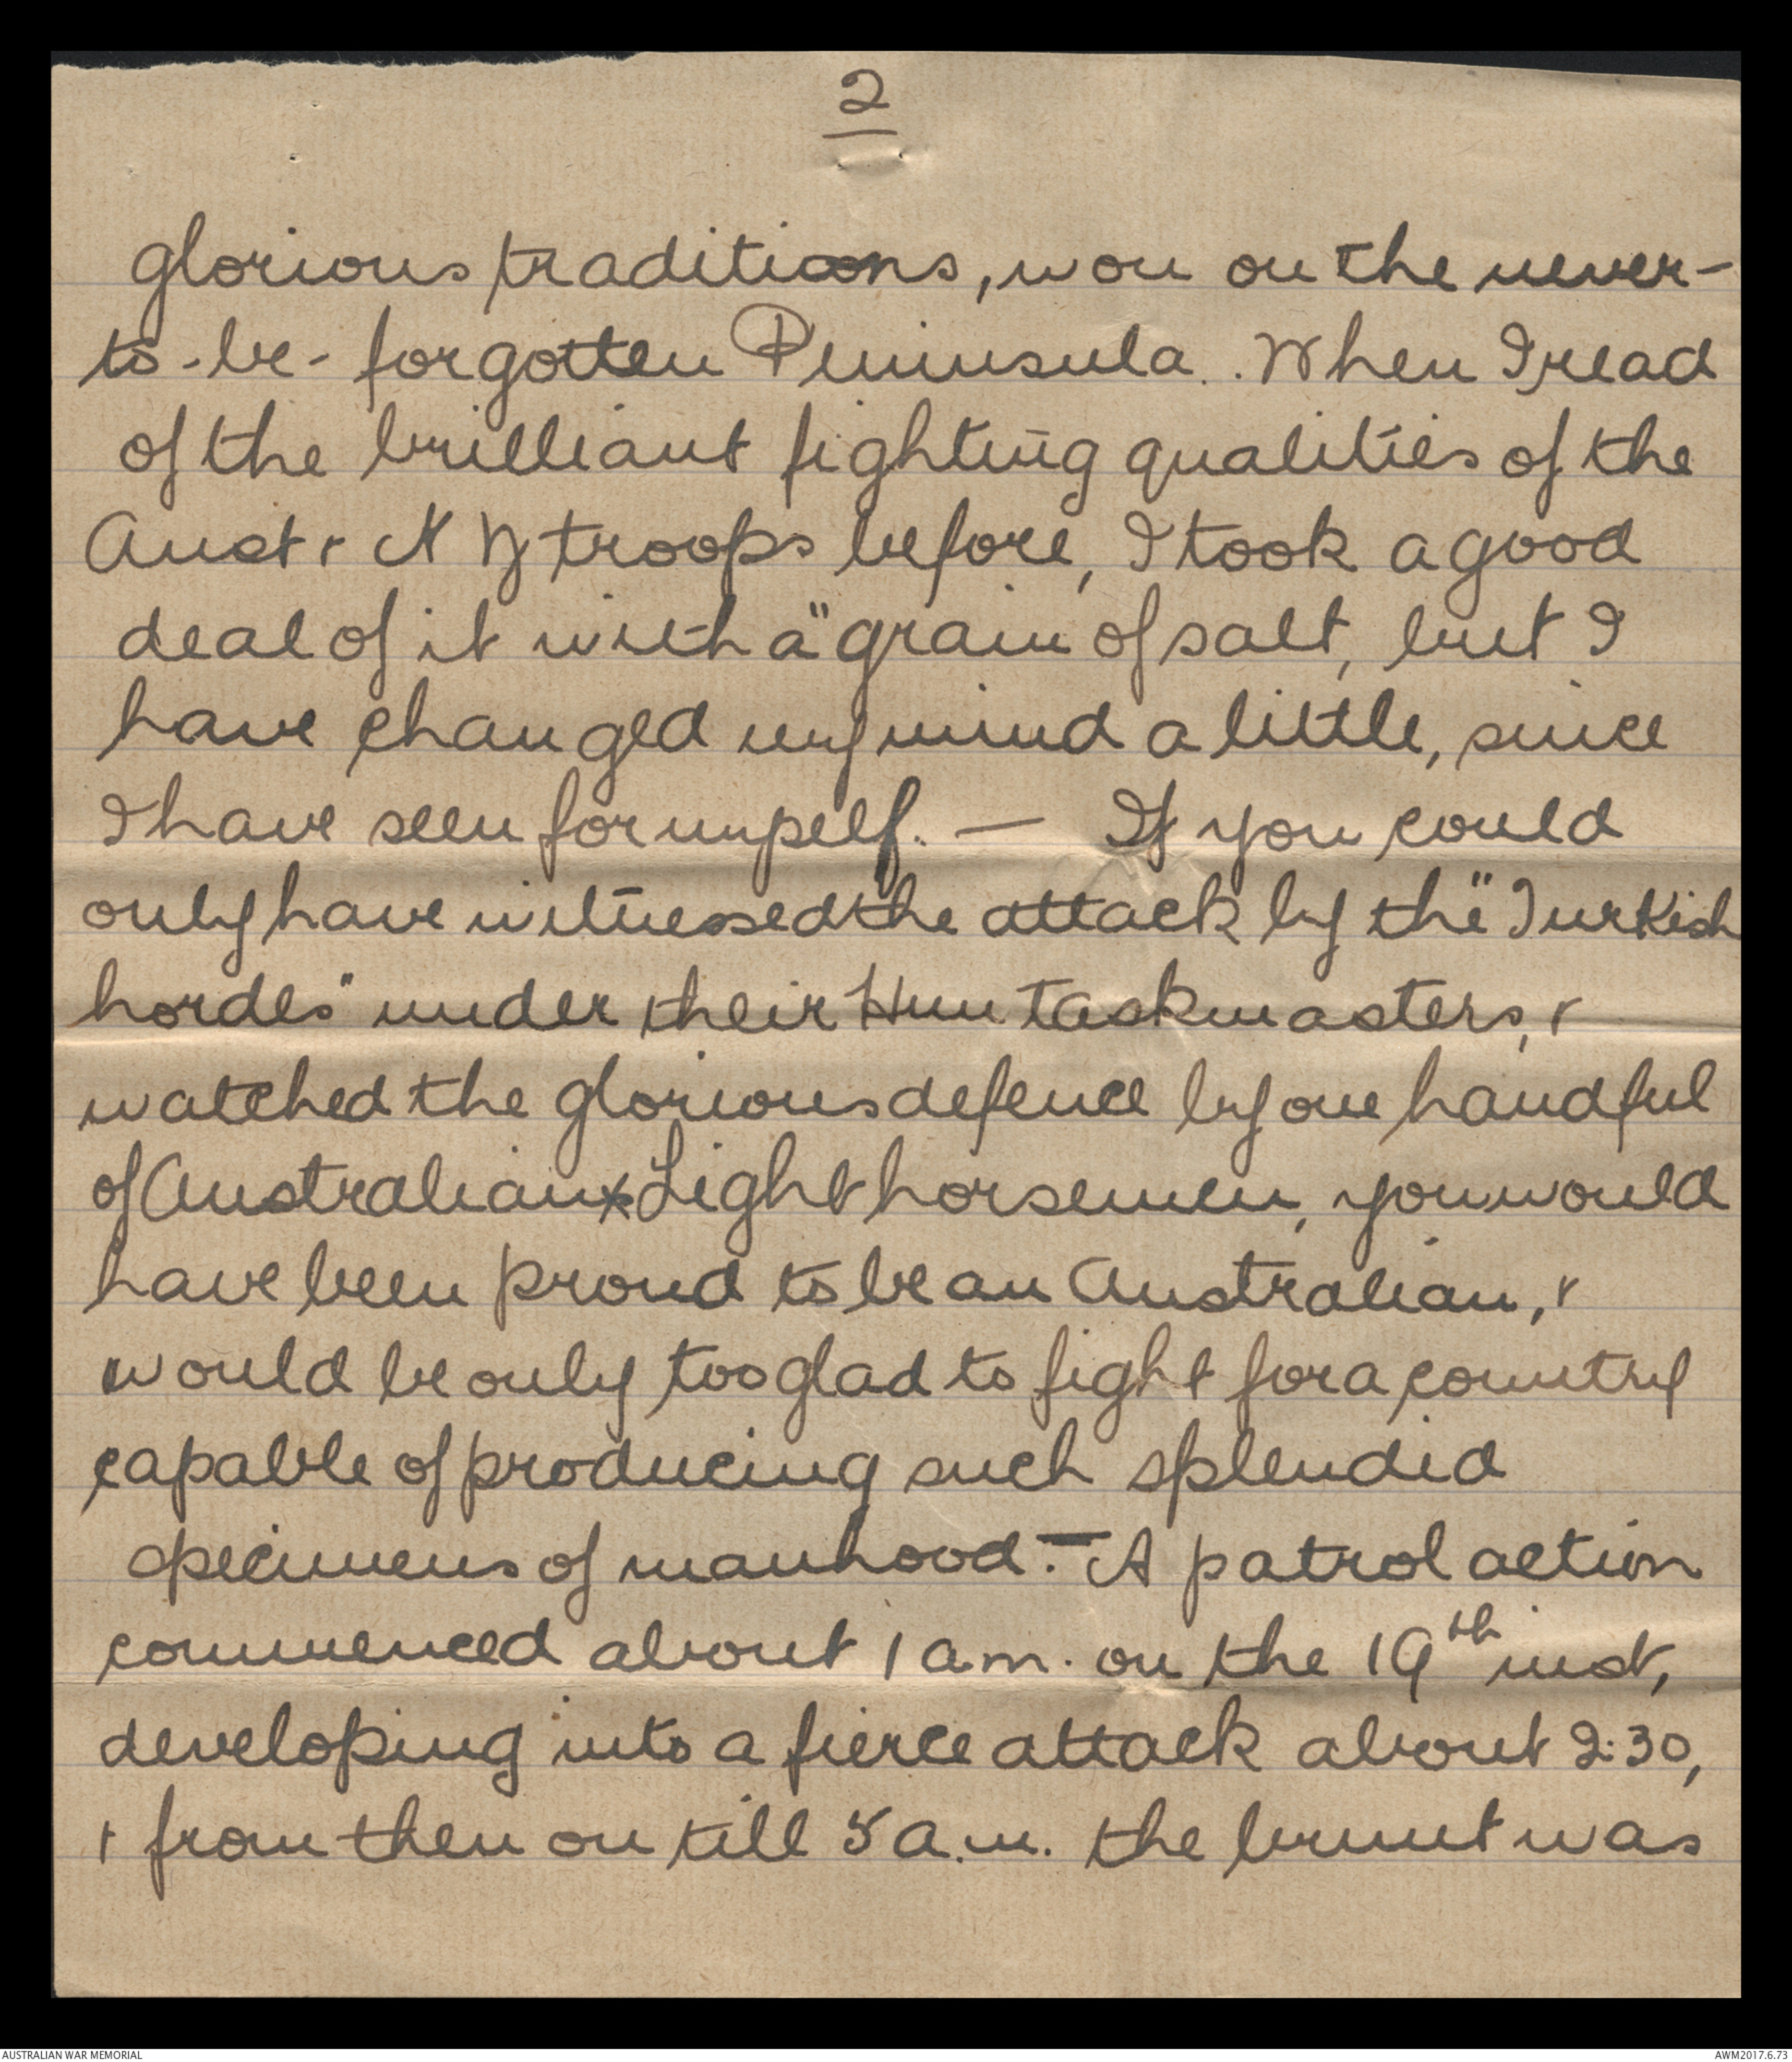 2
glorious traditions, won on the never-
to-be-forgotten Peninsula. When I read
of the brilliant fighting qualities of the
Aust & N Z troops before, I took a good
deal of it with a "grain of salt, but I
have changed my mind a little, since
I have seen for myself. — If you could
only have witnessed the attack by the "Turkish
hordes" under their Hun taskmasters, &
watched the glorious defence by one handful
of Australian Light horsemen, you would
have been proud to be an Australian, &
would be only too glad to fight for a country
capable of producing such splendid
specimens of manhood. — A patrol action
commenced about 1 a.m. on the 19th inst,
developing into a fierce attack about 2:30,
& from then on till 5 a.m. the brunt was
AUSTRALIAN WAR MEMORIAL
AWM2017.6.73